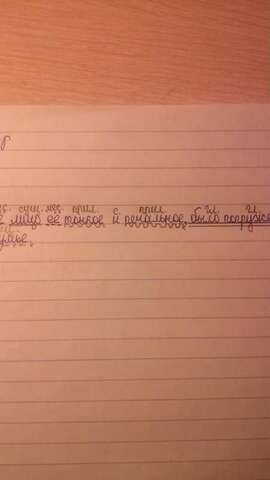 сущ. мес. прил. с. прил. гл. гл.
лицо ее тонкое и печальное, было погруже